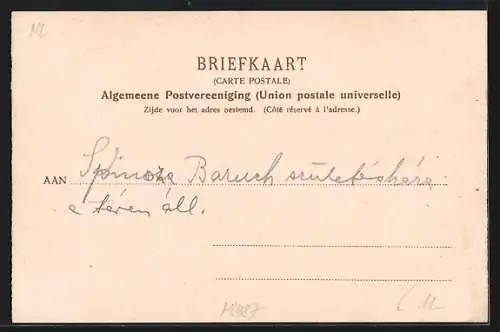 BRIEFKAART
(CARTE POSTALE)
Algemeene Postvereeniging (Union postale universelle)
Zijde voor het adres bestemd. (Côté réservé à l'adresse.)
AAN Spinoza Baruch születésháza
a téren áll.